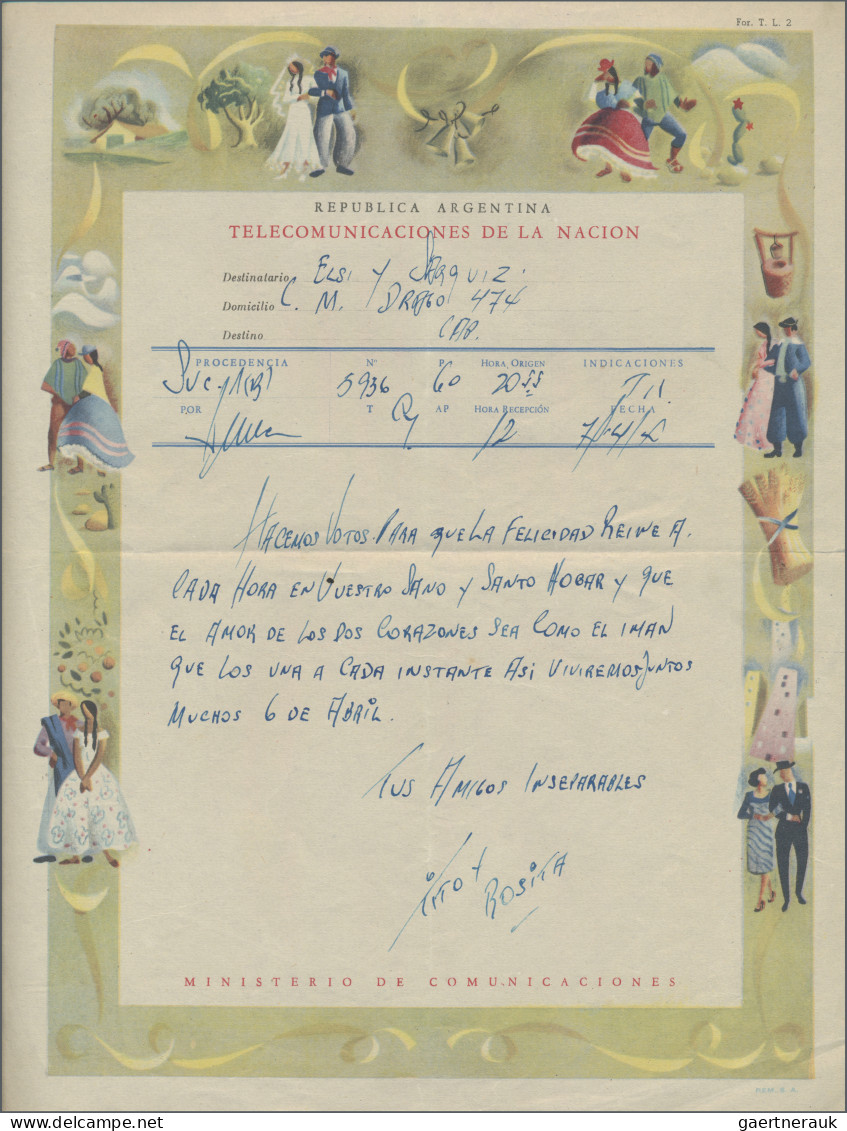 For. T. L. 2
REPUBLICA ARGENTINA
TELECOMUNICACIONES DE LA NACION
Destinatario ELSI Y SARQUIZ.
Domicilio C. M. DRAGO 474
Destino CAP.
PROCEDENCIA Nº P. HORA ORIGEN INDICACIONES
5936 60 20 55
POR T AP HORA RECEPCIÓN FECHA
12
HACEMOS VOTOS PARA QUE LA FELICIDAD REINE A
CADA HORA EN VUESTRO SANO Y SANTO HOGAR Y QUE
EL AMOR DE LOS DOS CORAZONES SEA COMO EL IMAN
QUE LOS UNA A CADA INSTANTE ASI VIVIREMOS JUNTOS
MUCHOS 6 DE ABRIL.
TUS AMIGOS INSEPARABLES
TITO Y ROSITA
MINISTERIO DE COMUNICACIONES
gaertnerauk